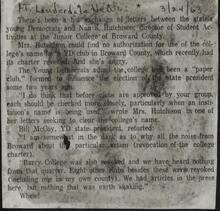 Ft. Lauderdale News 3/24/63
There's been a hot exchange of letters between the state's
young Democrats and Nan S. Hutchison, Director of Student Act-
ivities at the Junior College of Broward County.
Mrs. Hutchison could find no authorization for use of the col-
lege's name for a YD club in Broward County, which recently had
its charter revoked. And she's angry.
The Young Democrats admit the college club has been a "paper
club," formed to influence the election of state president
some two years ago.
"I do think that before clubs are approved by your group,
each should be checked more closely, particularly when an insti-
tution's name is being used," wrote Mrs. Hutchison in one of
her letters seeking to clear the college's name.
Bill McCoy, YD state president, retorted:
"I am somewhat in the dark as to why all the noise from
Broward about this particular action (revocation of the college
charter).
"Barry College was also revoked and we have heard nothing
from that quarter. Eight other clubs besides these were revoked
(including one in my own county). We had articles in the press
here, but nothing that was earth shaking."
Whew!